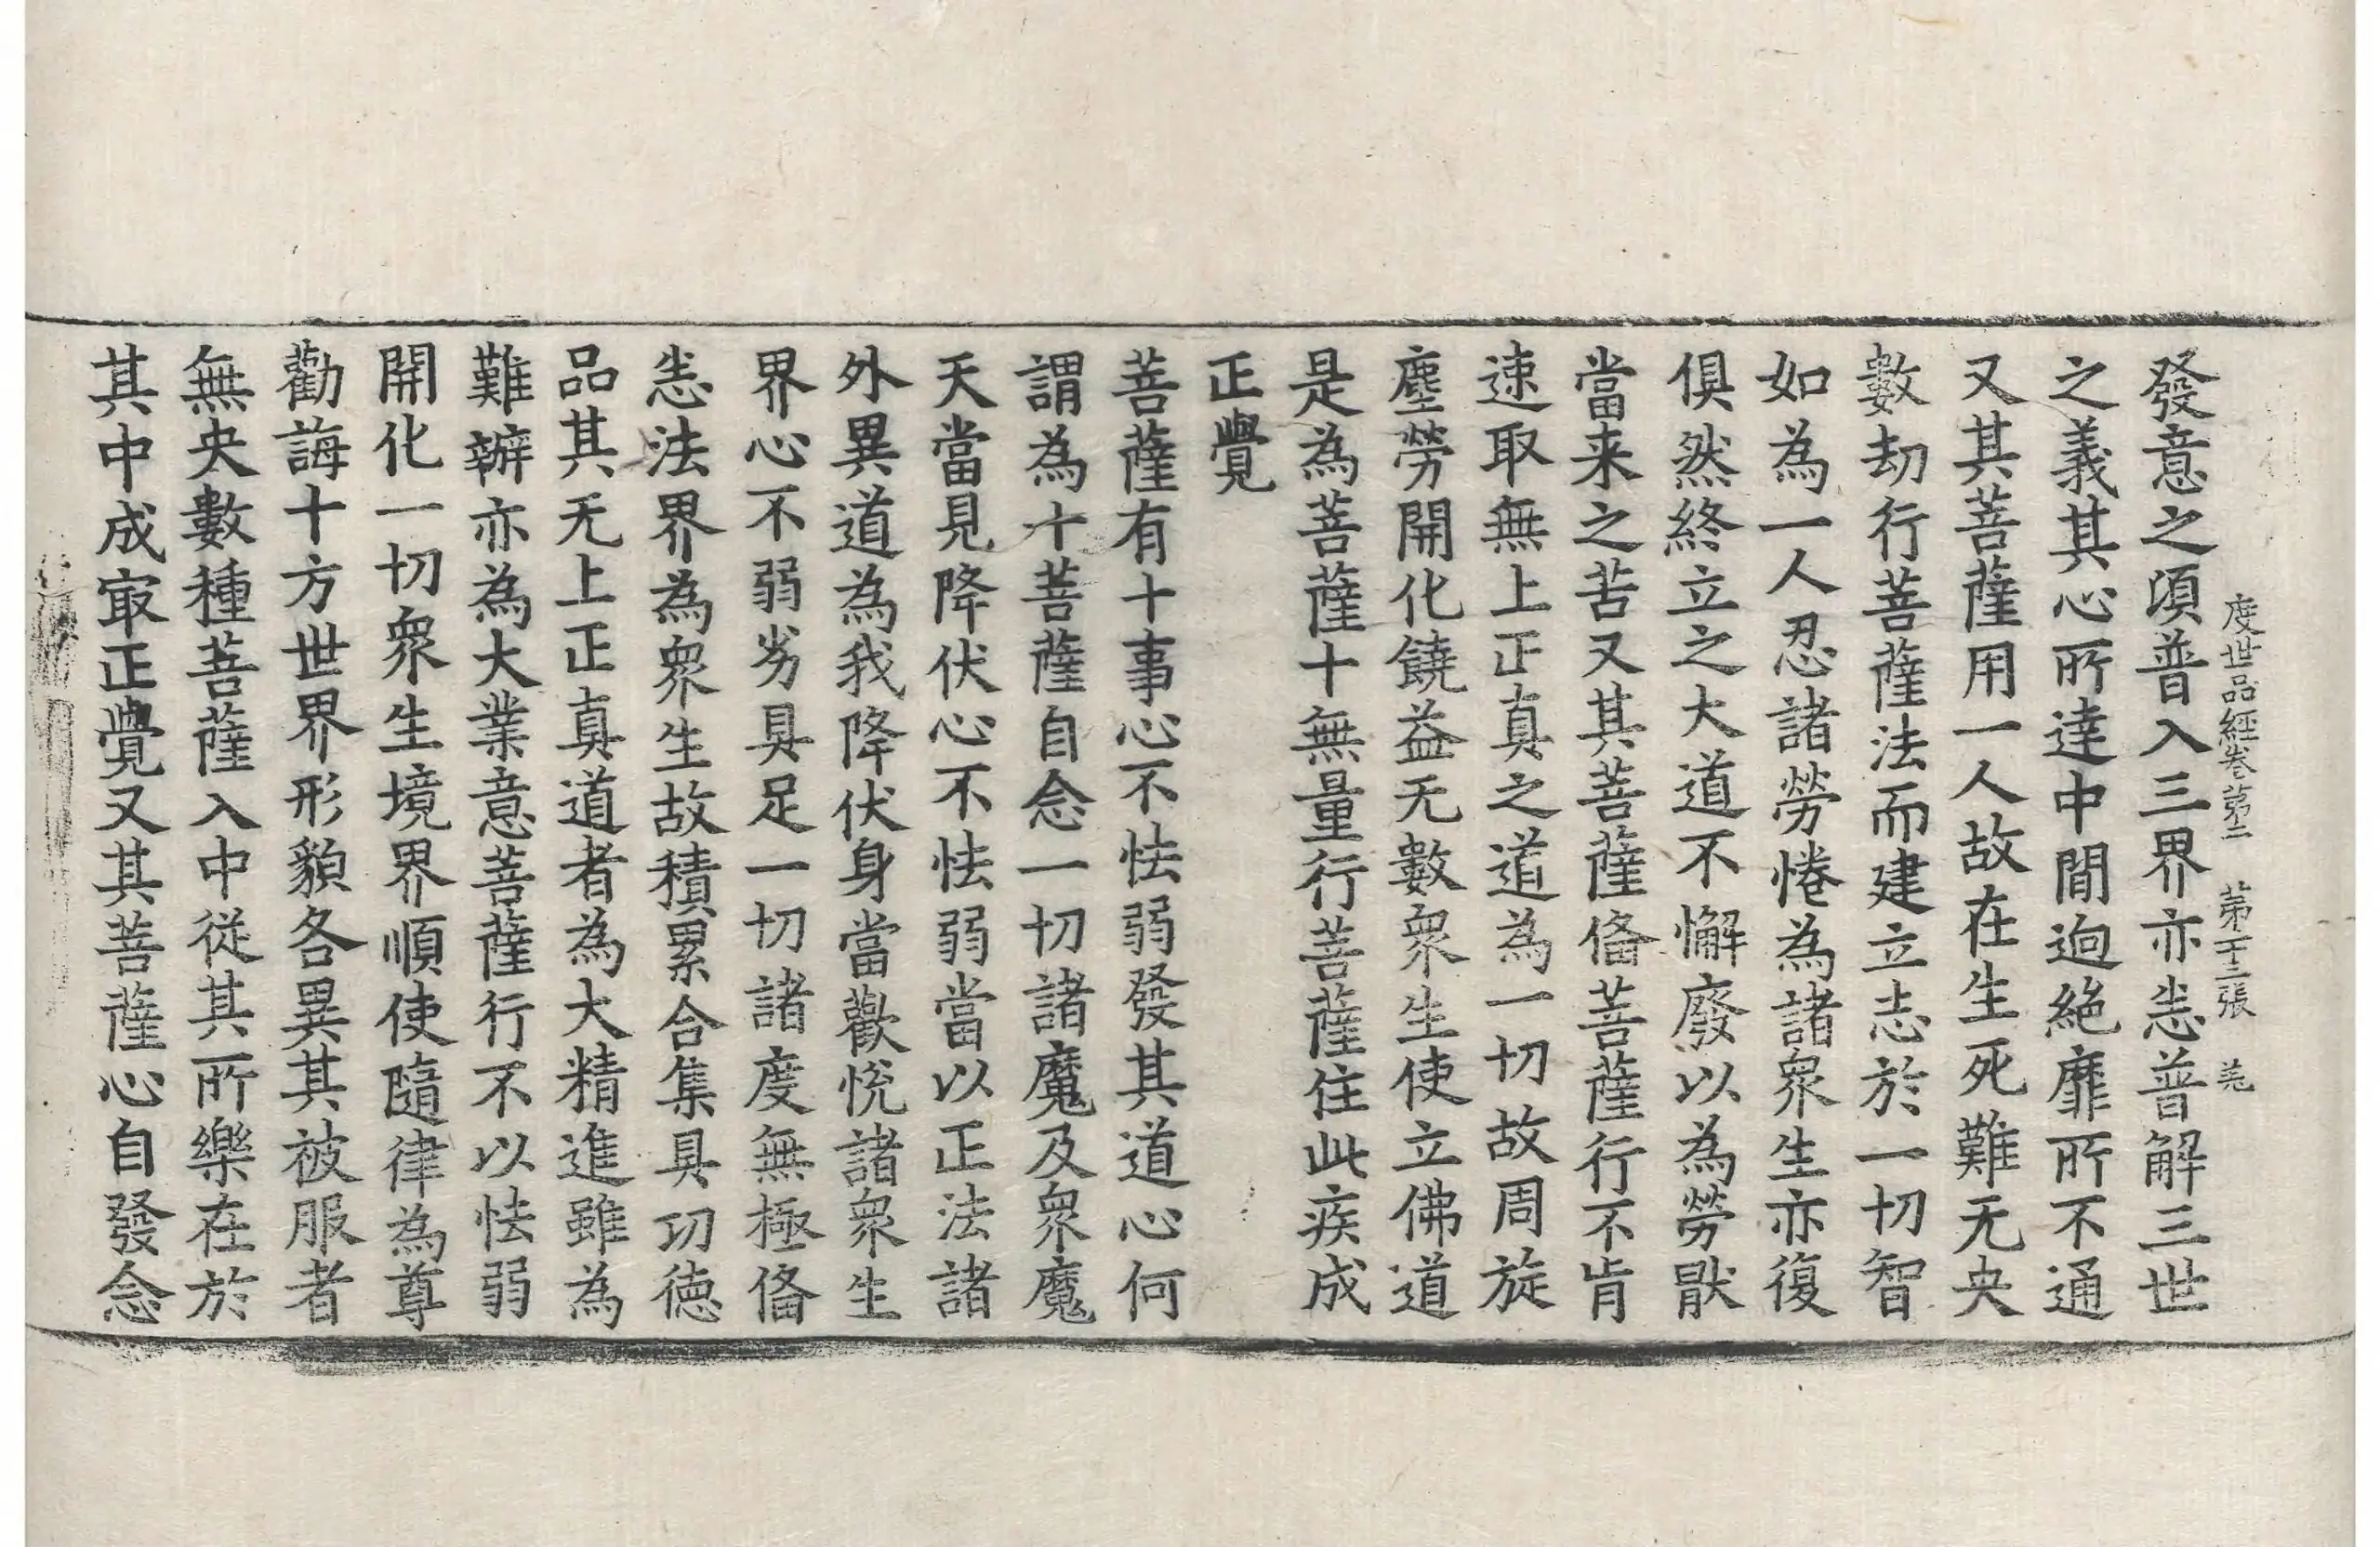 度世品經卷第二 第二十二張 羌
發意之須普入三界亦恚普解三世
之義其心所達中間逈絶靡所不通
又其菩薩用一人故在生死難无央
數劫行菩薩法而建立志於一切智
如為一人忍諸勞惓為諸衆生亦復
俱然終立之大道不懈廢以為勞猒
當来之苦又其菩薩俻菩薩行不肯
速取無上正真之道為一切故周旋
塵勞開化饒益无數衆生使立佛道
是為菩薩十無量行菩薩住此疾成
正覺
菩薩有十事心不怯弱發其道心何
謂為十菩薩自念一切諸魔及衆魔
天當見降伏心不怯弱當以正法諸
外異道為我降伏身當歡悅諸衆生
界心不弱劣具足一切諸度無極俻
恚法界為衆生故積累合集具功徳
品其无上正真道者為大精進雖為
難辦亦為大業意菩薩行不以怯弱
開化一切衆生境界順使隨律為尊
勸誨十方世界形貌各異其被服者
無央數種菩薩入中從其所樂在於
其中成㝡正覺又其菩薩心自發念